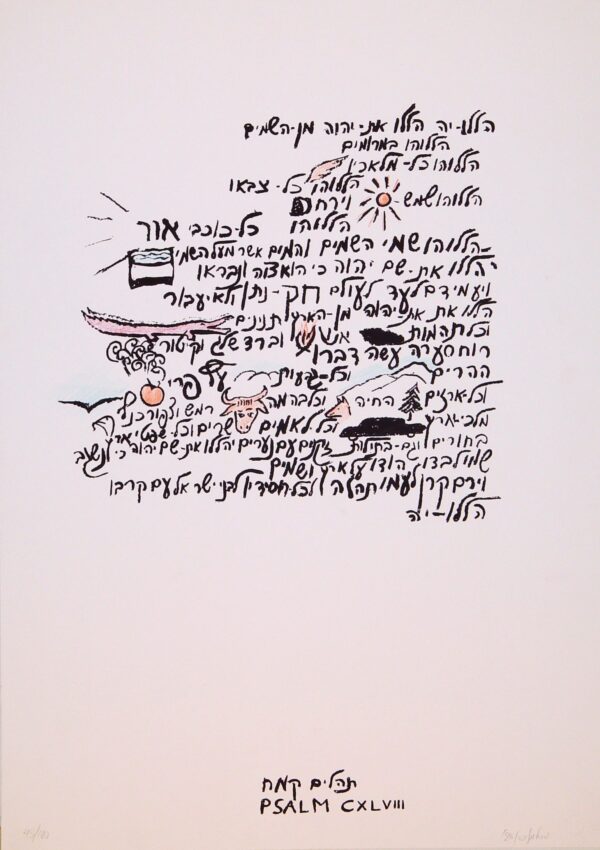 הללו-יה הללו את-יהוה מן-השמים
הללוהו במרומים
הללוהו כל-מלאכיו
הללוהו כל-צבאו
הללוהו שמש וירח
הללוהו כל-כוכבי אור
הללוהו שמי השמים והמים אשר מעל השמים
יהללו את-שם יהוה כי הוא צוה ונבראו
ויעמידם לעד לעולם חק-נתן ולא יעבור
הללו את יהוה מן-הארץ תנינים
וכל תהמות אש וברד שלג וקיטור
רוח סערה עשה דברו
ההרים וכל-גבעות עץ פרי
וכל-ארזים החיה וכל בהמה רמש וצפור כנף
מלכי-ארץ וכל לאמים שרים וכל-שפטי ארץ
בחורים וגם-בתולות זקנים עם נערים יהללו את-שם יהוה כי-נשגב
שמו לבדו הודו על ארץ ושמים
וירם קרן לעמו תהלה לכל-חסידיו לבני ישראל עם קרבו
הללו-יה
תהלים קמח
PSALM CXLVIII